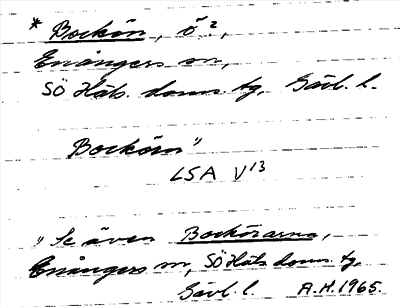 * Bockön, ö?,
Enångers sn,
SÖ Häls. doms. tg, Gävl. l.
Bockön"
LSA V13
" Se även Bockörarna,
Enångers sn, SÖ Häls. doms. tg,
Gävl. l. A.H. 1965.